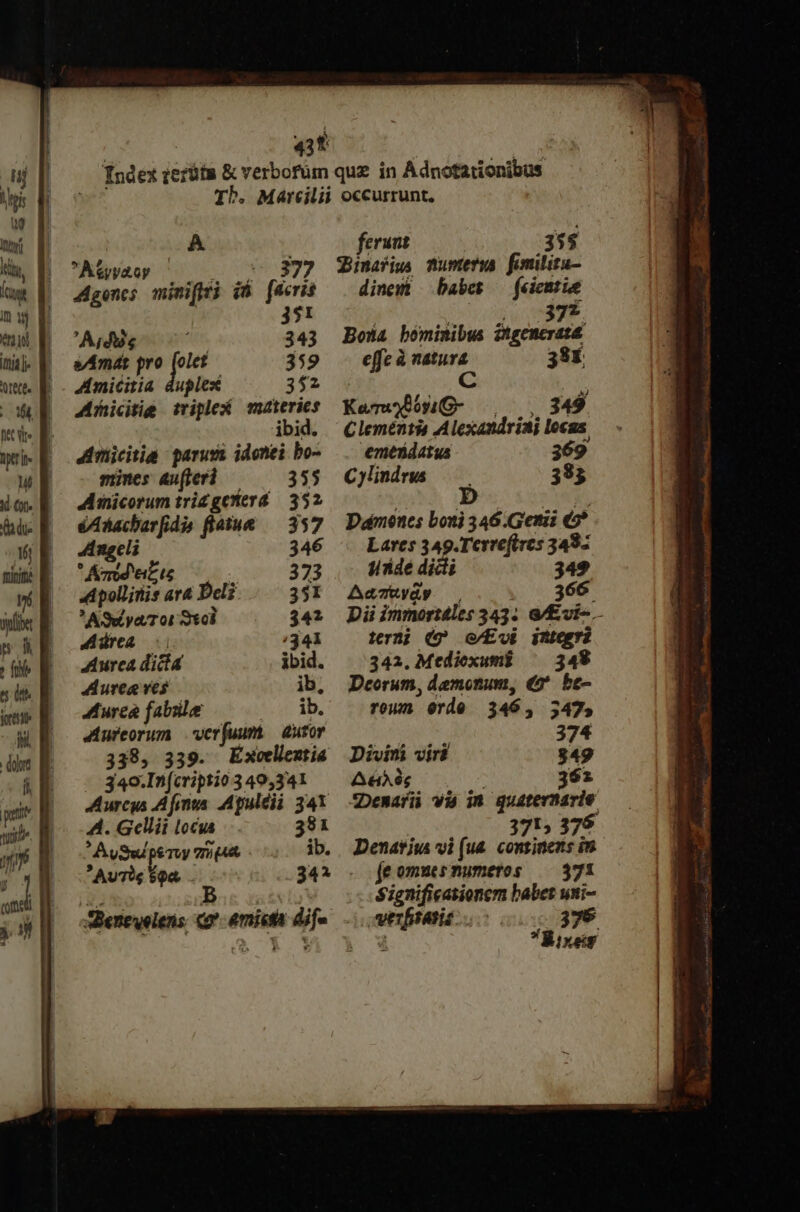 431
Index rerum & verborum quæ in Adnotationibus
Th. Marcilii occurrunt.
A
Ἄγγαον 377
Agones miniſtri in ſacris
351
Ἀϊδὴς 343
Amat pro ſolet 359
Amicitia duplex 352
Amicitiæ triplex materies
ibid.
Amicitiæ parum idonei ho-
mines auſteri 355
Amicorum tria genera 352
Anacharſidis ſtatuæ 357
Angeli 346
373
Apollinis ara Deli 351
Ἀθάνατοι θεοὶ 342
Aurea 341
Aurea dicta ibid.
Aureæ ves ib.
Aureæ fabulæ ib.
Aureorum verſuum autor
338, 339. Excellentia
340. Inſcriptio 340, 341
Aureus Aſinus Apuleii 341
A. Gellii locus 381
Ἀνθρώπειον πῆμα ib.
342
B
Benevolens & amicus dif-
ferunt 355
Binarius numerus ſimilitu-
dinem habet ſcientiæ
372
Bona hominibus ingenerata
eſſe à natura 381
C
Καταχθόνιος 349
Clementis Alexandrini locus
emendatus 369
Cylindrus 383
D
Dæmones boni 346. Genii &
Lares 349. Terreſtres 348.
Unde dicti 349
366
Dii immortales 343. Ævi-
terni & Ævi integri
342, Medioxumi 348
Deorum, dæmonum, & he-
roum ordo 346, 347,
374
Divini viri 349
Δειλὸς 362
Denarii vis in quaternario
371, 376
Denarius vi ſua continens in
ſe omnes numeros 371
Significationem habet uni-
verſitatis 376